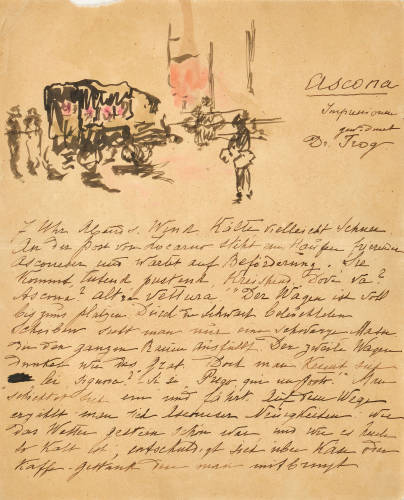 Ascona
Impressionen
gewidmet
Dr. Trog
7 Uhr Abends. Wind Kälte vielleicht Schnee
An der Post von Locarno steht ein Haufen
Asconeser und wartet auf Beförderung. Sie
kommt tutend pustend, kreischend. Dove va?
Ascona? altra vettura". Der Wagen ist voll
bis zum platzen. Durch die schwach beleuchteten
Scheiben sieht man nur eine schwarze Masse
die den ganzen Raum ausfüllt. Der zweite Wagen
dunkel wie das Grab. Doch man kennt sich
lei Signora? Si si. Prego, qui un posto." Man
schiebt sich ein und fährt. Auf dem Wege
erzählt man sich Neuigkeiten. Wie
das Wetter gestern schön war und wie es heute
so kalt ist, entschuldigt sich über Käse oder
Kaffe-gestank den man mitbringt